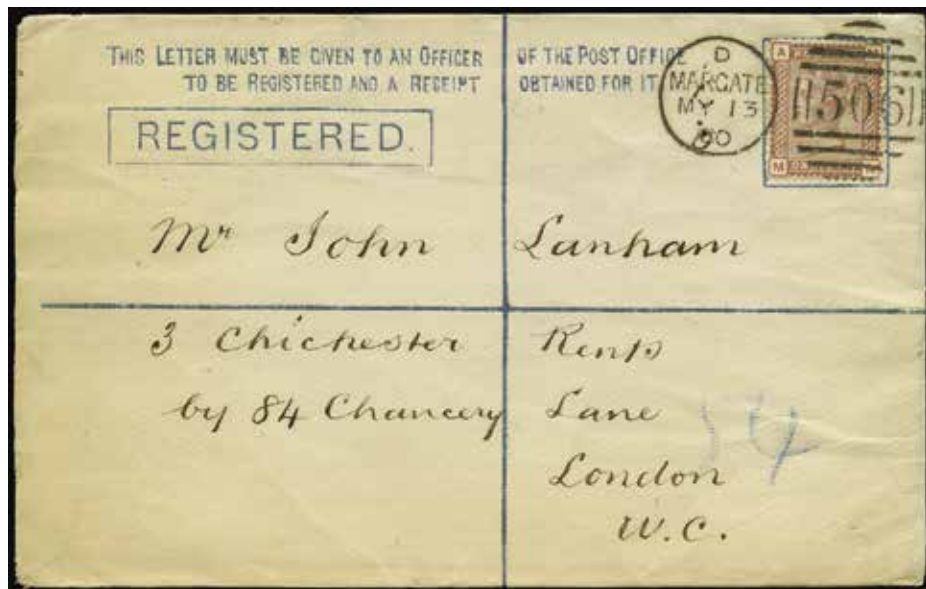 THIS LETTER MUST BE GIVEN TO AN OFFICER OF THE POST OFFICE
TO BE REGISTERED AND A RECEIPT OBTAINED FOR IT
REGISTERED.
D
MARGATE
MY 13
90
506
A
M
Mr John Lanham
3 Chichester Rents
by 84 Chancery Lane
London
W.C.